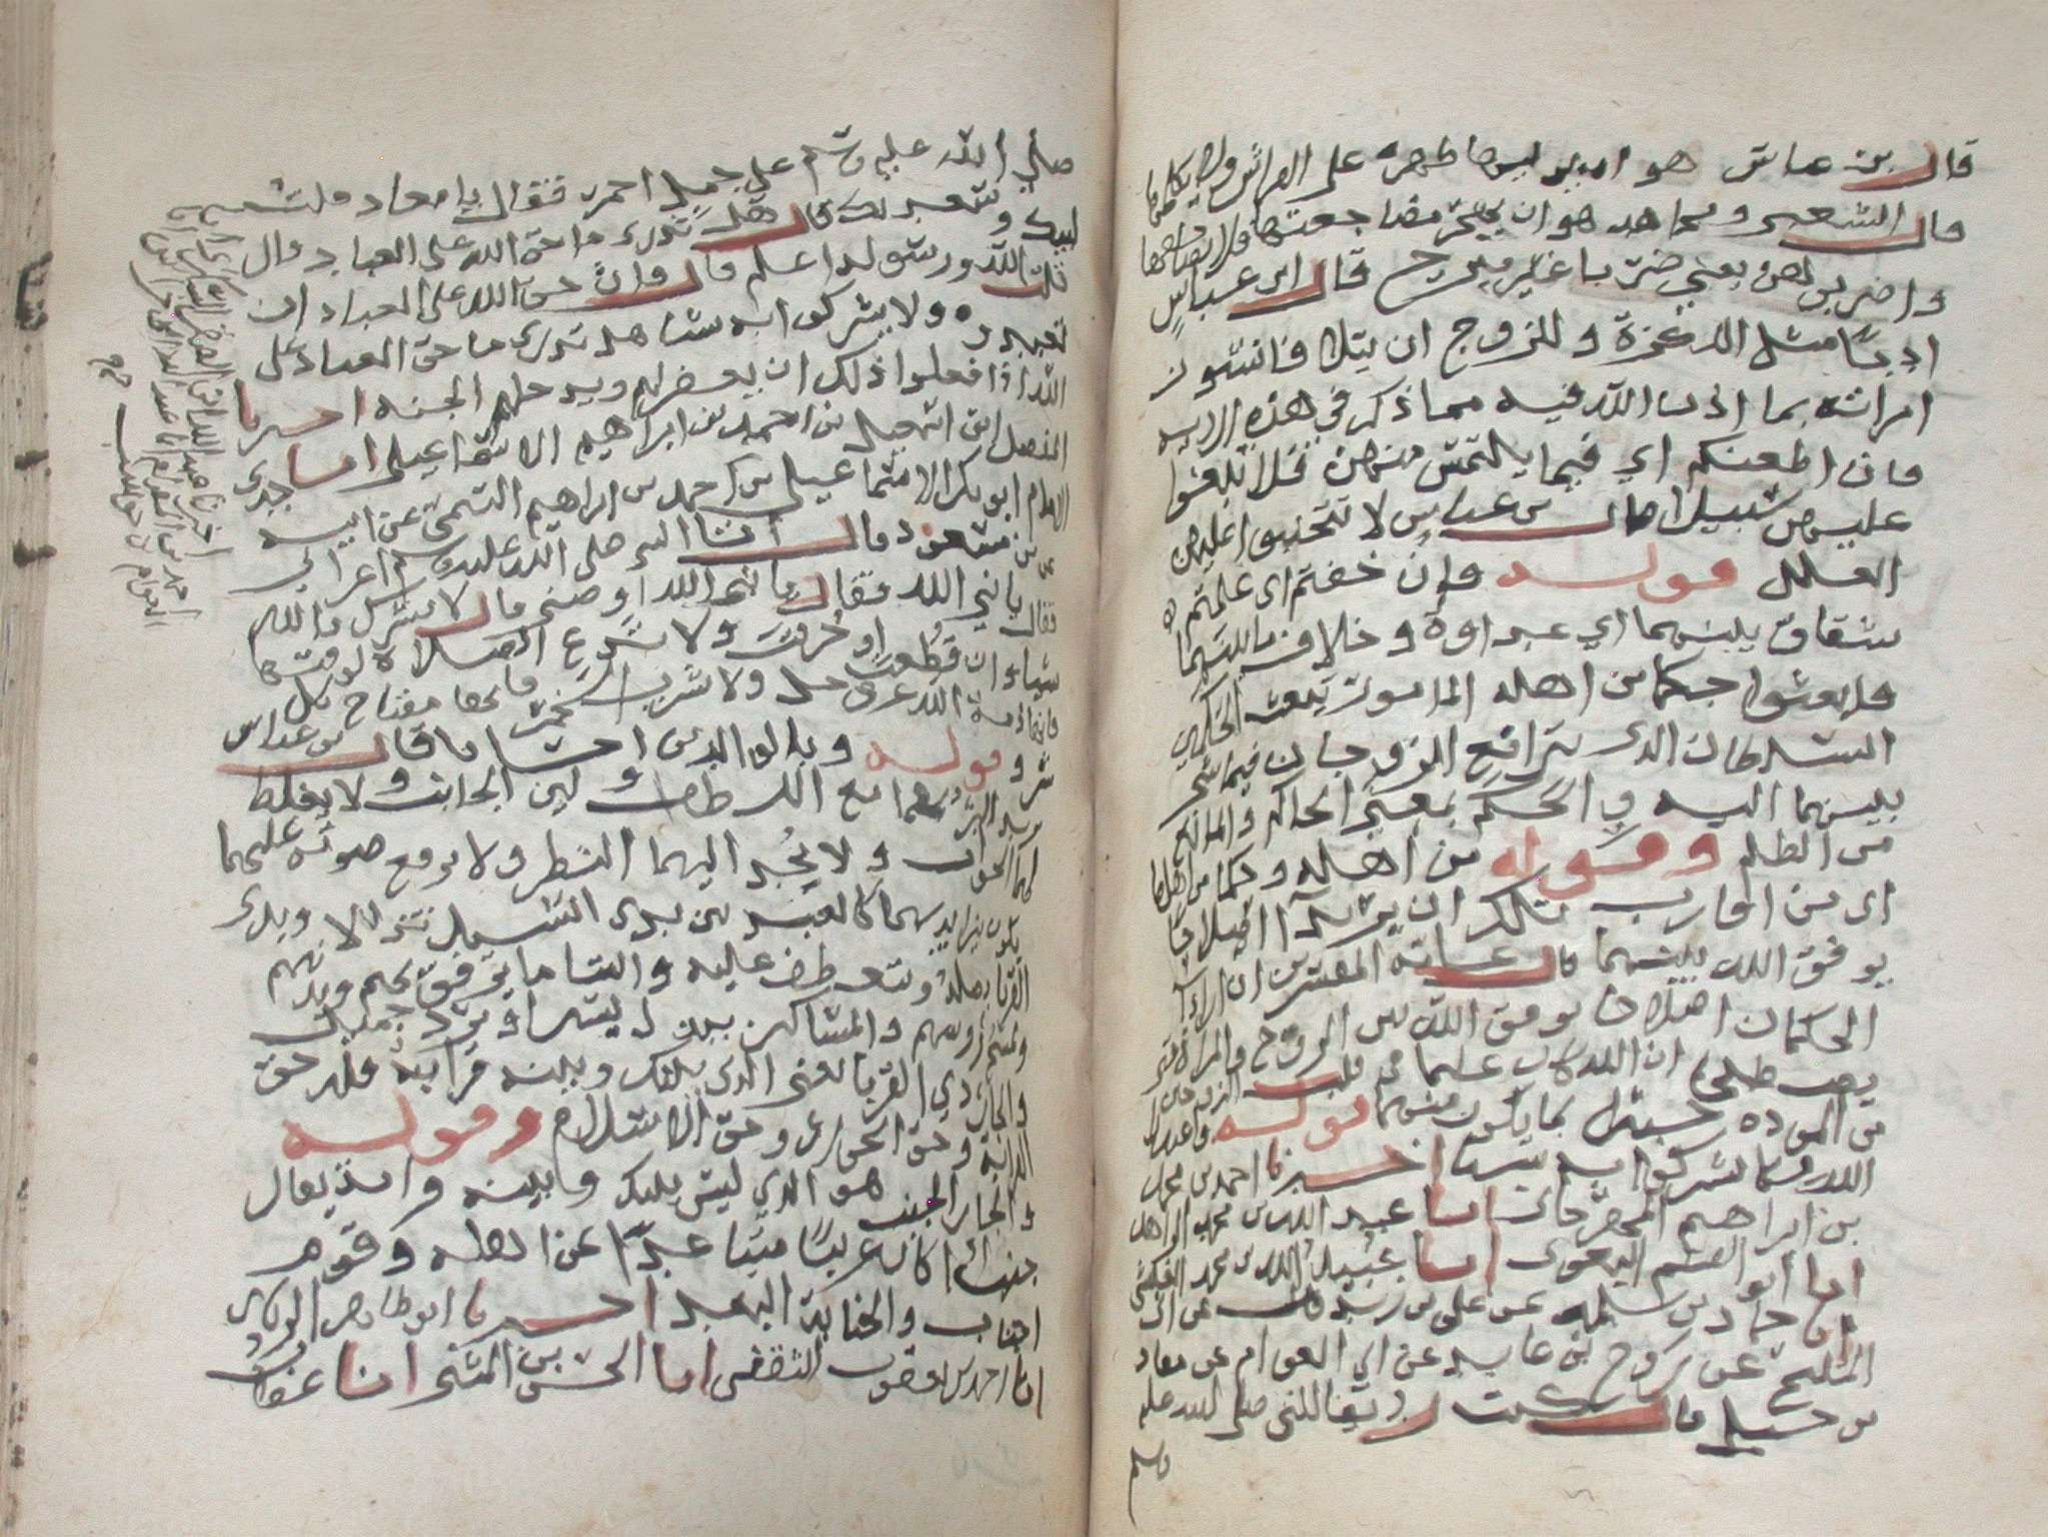 قال بن عباس هو ان يوليها ظهره على الفراش ولا يكلمها
وقال الشعبي ومجاهد هو ان يهجر مضاجعتها فلا يضاجعها
واضربوهن يعني ضربا غير مبرح قال ابن عباس
ادبا مثل اللكزة وللزوج ان يتلافا نشوز
امراته بما اذن الله فيه مما ذكر في هذه الايه
فان اطعنكم اي فيما يلتمس منهن فلا تبغوا
عليهن سبيلا قال بن عباس لا تتجنوا عليهن
العلل قوله وان خفتم اي علمتم
شقاق بينهما اي عداوة وخلاف ما بينهما
فابعثوا حكما من اهله المامور ببعث الحكمين
السلطان الذي يترافع الزوجان فيما شجر
بينهما اليه والحكم بمعنى الحاكم والمانع
من الظلم وقوله من اهله وحكما من اهلها
اي من اقارب ان يريدا اصلاحا
يوفق الله بينهما قال عامة المفسرين ان اراد
الحكمان اصلاحا يوفق الله بين الزوج والمراة حتى
يصطلحا ان الله كان عليما بما في قلب الزوجين
من المودة خبيرا بما يكون منهما قوله واعبدوا
الله ولا تشركوا به شيئا اخبرنا احمد بن محمد
بن ابراهيم المهرجاني انا عبيد الله بن محمد الزاهد
انا ابو القسم البغوي انا عبيد الله بن محمد العيشي
انا حماد بن سلمه عن علي بن زيد عن ابي
المليح عن روح بن عابد عن ابي العوام عن معاذ
بن جبل قال كنت رديفا للنبي صلى الله عليه
وسلم
صلى الله عليه وسلم على جمل احمر فقال يا معاذ قلت
لبيك وسعديك قال هل تدري ما حق الله على العباد قال
قلت الله ورسوله اعلم قال فان حق الله على العباد ان
تعبدوه ولا يشركوا به شيا هل تدري ما حق العباد على
الله اذا فعلوا ذلك ان يغفر لهم ويدخلهم الجنة اخبرنا
المفضل ابن اسمعيل بن احمد بن ابراهيم الاسماعيلي انا جدي
الامام ابو بكر الاسماعيلي احمد بن ابراهيم التيمي عن ابيه
عن بن مسعود قال اتا النبي صلى الله عليه وسلم اعرابي
فقال يا نبي الله اوصني قال لا تشرك بالله
شيا وان قطعت او حرقت ولا تدع الصلاة لوقتها
فانها ذمة الله عز وجل ولا تشرب الخمر فانها مفتاح كل
شر وقوله وبالوالدين احسانا قال بن عباس
يريد البر بهما مع اللطف ولين الجانب ولا يغلظ
لهما الجواب ولا يحد اليهما النظر ولا يرفع صوته عليهما
يكون بين ايديهما كالعبد بين يدي السيد تذللا لهما وبذي
القربا يصله ويتعطف عليه واليتاما يرفق بهم ويدنيهم
ويمسح رؤسهم والمساكين ببذل يسير او رد جميل
والجار ذي القربا يعني الذي بينك وبينه قرابة فله حق
القرابة وحق الجوار وحق الاسلام وقوله
والجار الجنب هو الذي ليس بينك وبينه قرابة يقال
جنب اذا كان غريبا متباعدا عن اهله وقوم
اجناب والجنابة البعد اخبرنا ابو طاهر الزيادي
انا احمد بن يعقوب الثقفي انا الحسن بن المثنى انا عفان